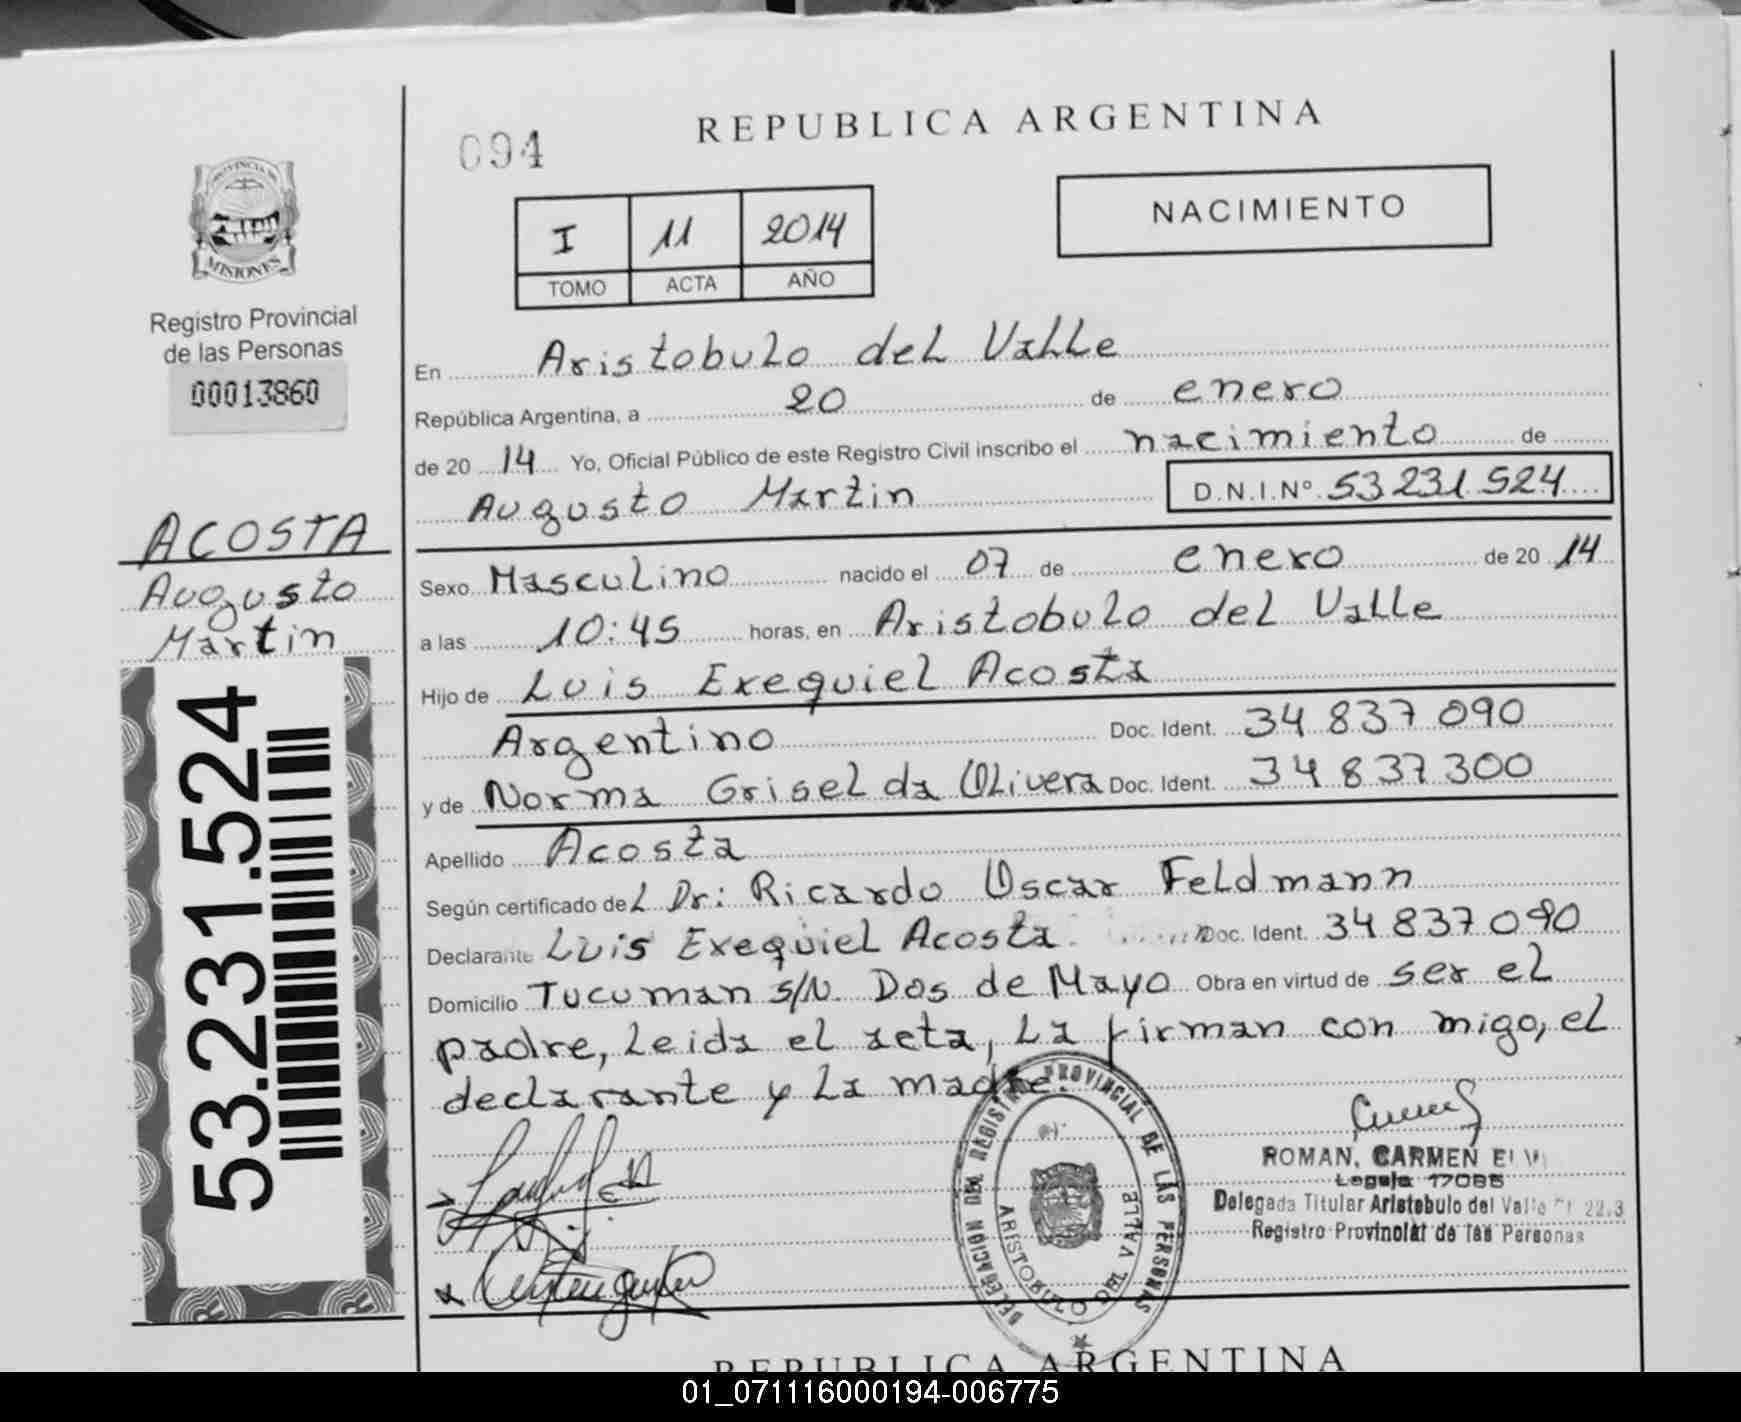 094
REPUBLICA ARGENTINA
PROVINCIA DE
MISIONES
Registro Provincial
de las Personas
00013860
I 11 2014
TOMO ACTA AÑO
NACIMIENTO
En Aristobulo del Valle
República Argentina, a 20 de enero
de 20 14 Yo, Oficial Público de este Registro Civil inscribo el nacimiento de
Augusto Martin D.N.I.Nº 53 231 524
ACOSTA
Augusto
Martin
53.231.524
Sexo Masculino nacido el 07 de enero de 20 14
a las 10:45 horas, en Aristobulo del Valle
Hijo de Luis Exequiel Acosta
Argentino Doc. Ident. 34 837 090
y de Norma Griselda Olivera Doc. Ident. 34 837 300
Apellido Acosta
Según certificado del Dr: Ricardo Oscar Feldmann
Declarante Luis Exequiel Acosta Doc. Ident. 34 837 090
Domicilio Tucuman S/N. Dos de Mayo Obra en virtud de ser el
padre, Leida el acta, La firman con migo, el
declarante y La madre.
DELEGACION DEL REGISTRO PROVINCIAL DE LAS PERSONAS
ARISTOBULO DEL VALLE
ROMAN, CARMEN
Legajo 17085
Delegada Titular Aristobulo del Valle 22.3
Registro Provincial de las Personas
REPUBLICA ARGENTINA
01_071116000194-006775